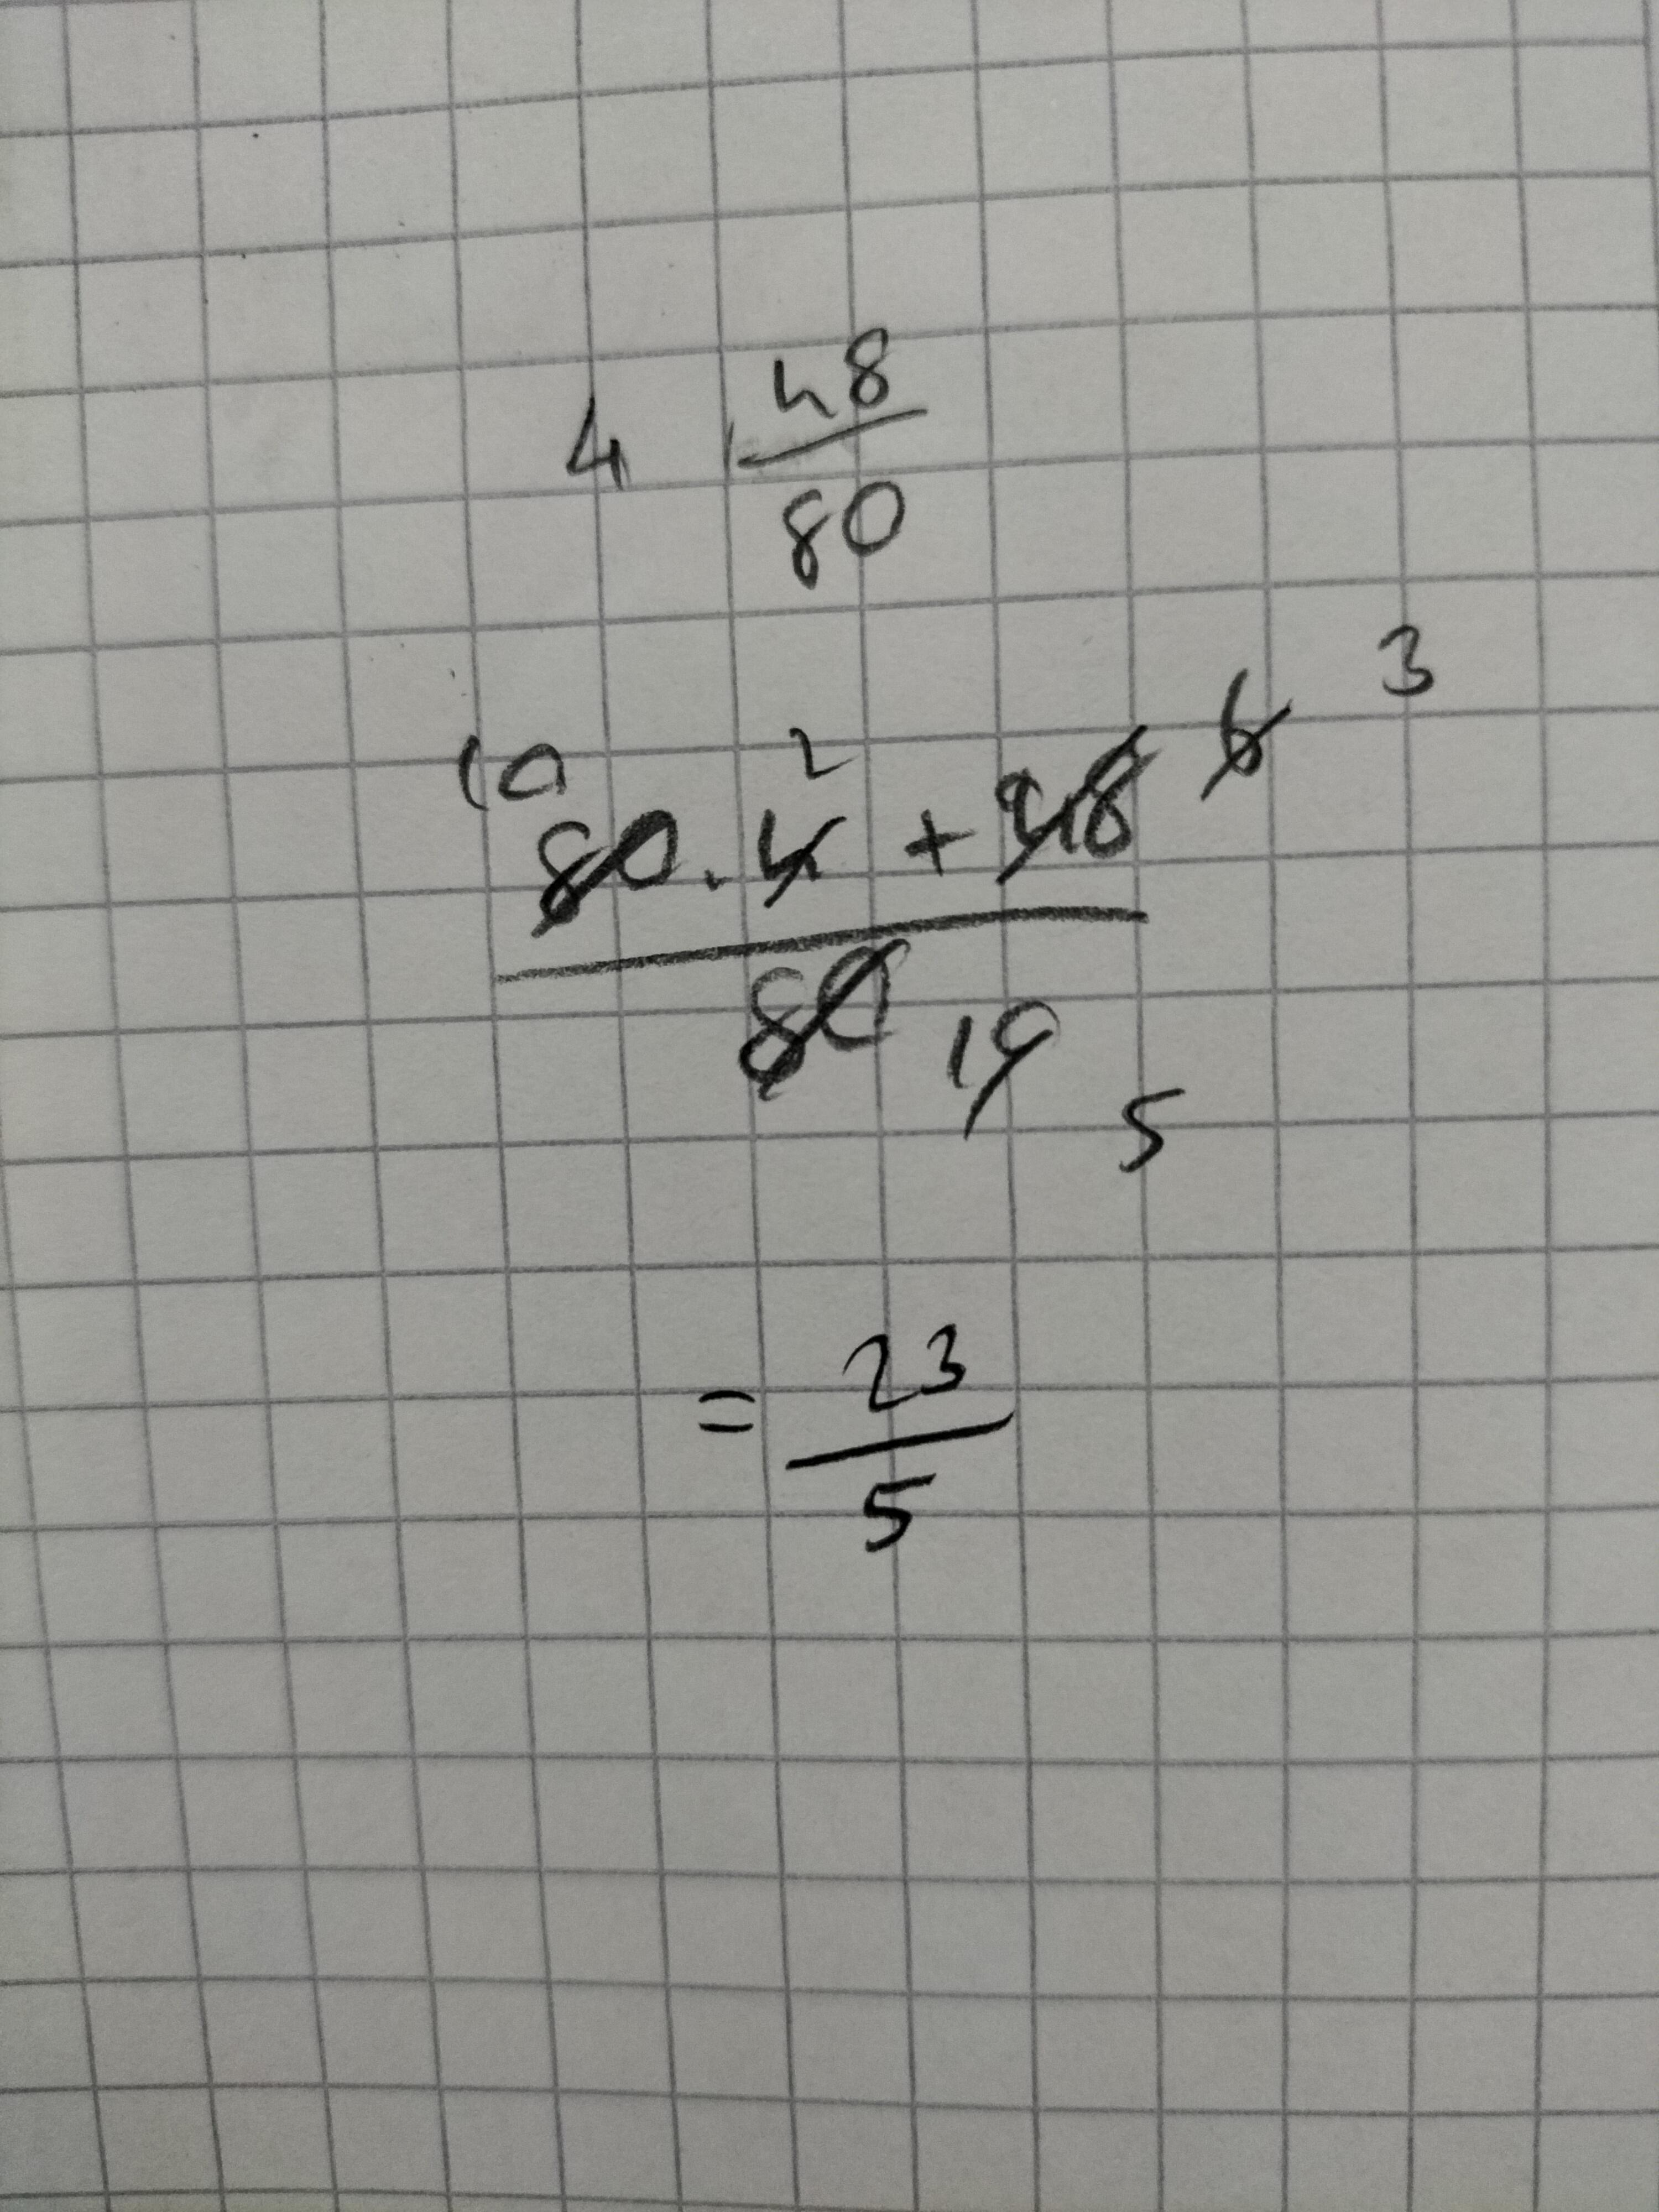 4 48/80
10 2 6 3
80 . 4 + 48
80 10 5
= 23/5